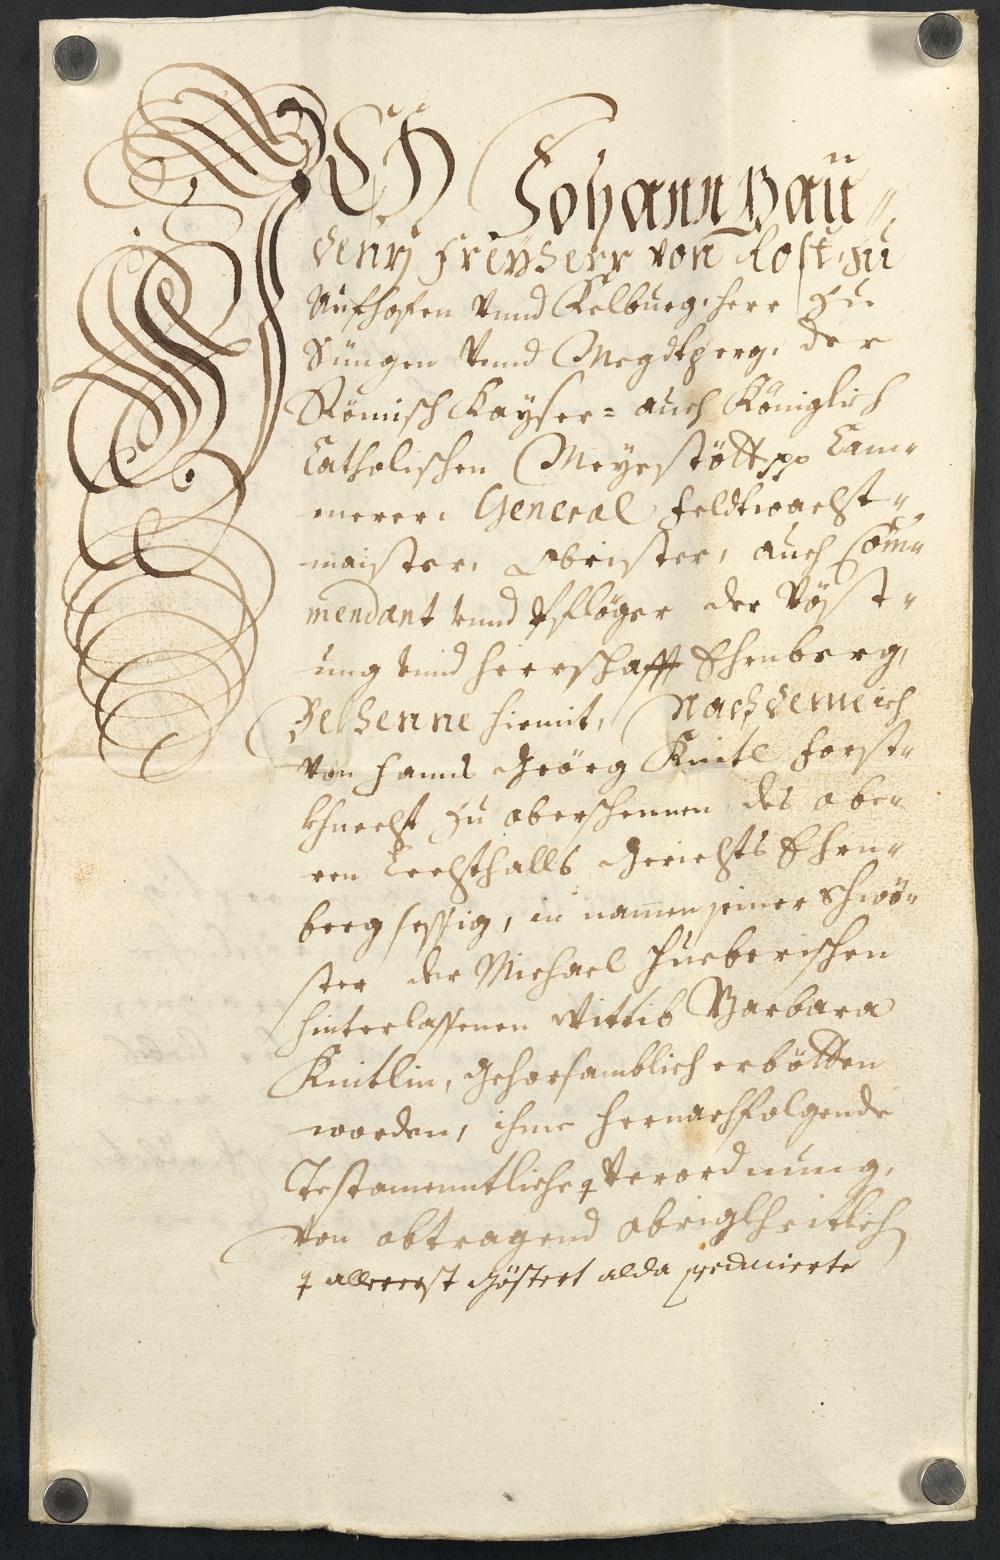 ICH Johann Gau⸗
denz Freyherr von Rost, zu
Aufhofen vnnd Kelburg, herr zu
Süngen vnnd Megdtperg, der
Römisch Kayser= auch Königlich
Catholischen Meyestött pp Cam⸗
merer, General Feldtwacht⸗
maister, Obrister, auch Com⸗
mendant vnnd Pfløger der Vöst⸗
ung vnnd Herrschafft Ehrnberg,
Bekhenne hiemit, Nachdeme ich
von Hannß Geörg Knitl Forst⸗
khnecht zu oberschennen des obe⸗
ren Lechthalls Gerichts Ehrn⸗
berg sessig, in namen seiner Schwö⸗
ster der Michael Hueberischen
hinterlassenen Wittib Barbara
Knitlin, gehorsamblich erbötten
worden, ihme hernachfolgende
Testamenntliche Verordnung,
von obtragend obrigkheitlich
allererst göstert alda